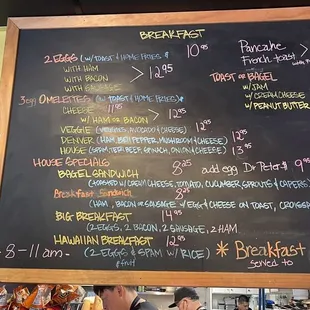 BREAKFAST
2 EGGS (W/TOAST & HOME FRIES) 10.95
WITH HAM
WITH BACON > 12.95
WITH SAUSAGE
3 egg OMELETTES (W/ TOAST & HOME FRIES)
CHEESE 11.95
W/ HAM or BACON > 12.95
VEGGIE (VEGGIES, AVOCADO & CHEESE) 12.95
DENVER (HAM, BELL PEPPER, MUSHROOM & CHEESE) 12.95
HOUSE (SPAM, TERI BEEF, SPINACH, ONION & CHEESE) 13.95
HOUSE SPECIALS
BAGEL SANDWICH 8.25 add egg
(TOASTED W/ CREAM CHEESE, TOMATO, CUCUMBER SPROUTS & CAPERS)
Breakfast Sandwich 8.25
(HAM, BACON or SAUSAGE W/ EGG & CHEESE ON TOAST, CROISSA
BIG BREAKFAST 14.95
(2 EGGS, 2 BACON, 2 SAUSAGE, 2 HAM,
HAWAIIAN BREAKFAST 12.95
(2 EGGS & SPAM W/ RICE)
& fruit
8-11am
Pancake
French toast
TOAST or BAGEL
W/ JAM
W/ CREAM CHEESE
W/ PEANUT BUTTER
Dr Peter's 9.95
* Breakfast
served to